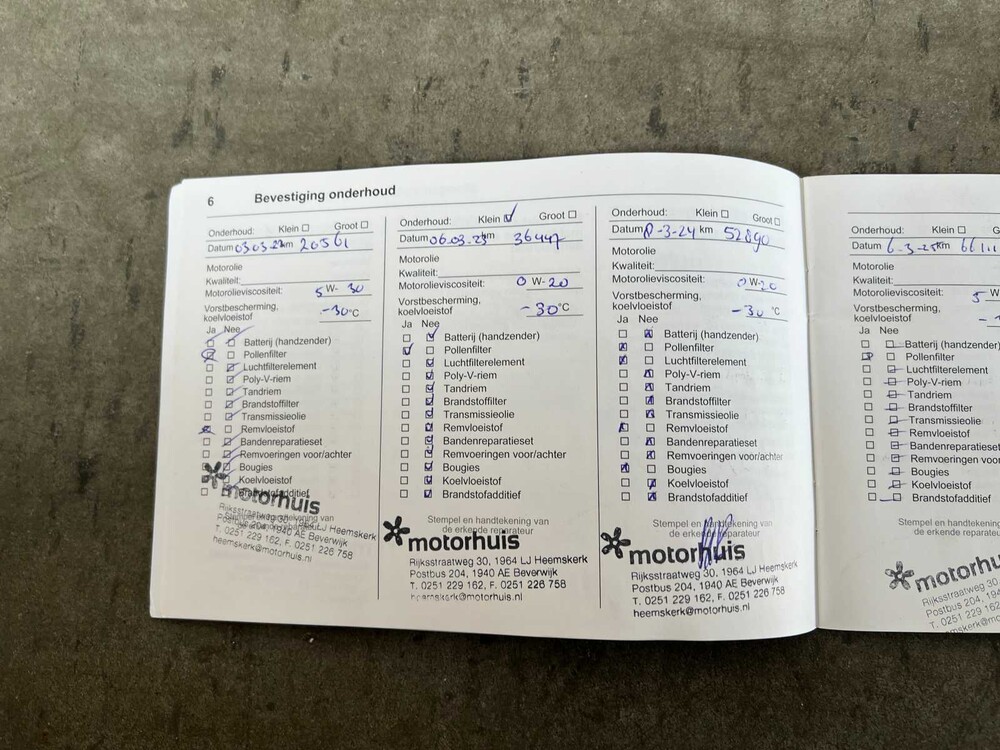 6 Bevestiging onderhoud
Onderhoud: Klein Groot
Datum 03.03.22 km 20561
Motorolie
Kwaliteit:
Motorolieviscositeit: 5 W- 30
Vorstbescherming,
koelvloeistof -30°C
Ja Nee
Batterij (handzender)
Pollenfilter
Luchtfilterelement
Poly-V-riem
Tandriem
Brandstoffilter
Transmissieolie
Remvloeistof
Bandenreparatieset
Remvoeringen voor/achter
Bougies
Koelvloeistof
Brandstofadditief
motorhuis
Rijksstraatweg 30, 1964 LJ Heemskerk
Postbus 204, 1940 AE Beverwijk
T. 0251 229 162, F. 0251 226 758
heemskerk@motorhuis.nl
Onderhoud: Klein Groot
Datum 06.03.23 km 36447
Motorolie
Kwaliteit:
Motorolieviscositeit: 0 W- 20
Vorstbescherming,
koelvloeistof -30°C
Ja Nee
Batterij (handzender)
Pollenfilter
Luchtfilterelement
Poly-V-riem
Tandriem
Brandstoffilter
Transmissieolie
Remvloeistof
Bandenreparatieset
Remvoeringen voor/achter
Bougies
Koelvloeistof
Brandstofadditief
Stempel en handtekening van
de erkende reparateur
motorhuis
Rijksstraatweg 30, 1964 LJ Heemskerk
Postbus 204, 1940 AE Beverwijk
T. 0251 229 162, F. 0251 226 758
heemskerk@motorhuis.nl
Onderhoud: Klein Groot
Datum 8-3-24 km 52890
Motorolie
Kwaliteit:
Motorolieviscositeit: 0 W-20
Vorstbescherming,
koelvloeistof -30 °C
Ja Nee
Batterij (handzender)
Pollenfilter
Luchtfilterelement
Poly-V-riem
Tandriem
Brandstoffilter
Transmissieolie
Remvloeistof
Bandenreparatieset
Remvoeringen voor/achter
Bougies
Koelvloeistof
Brandstofadditief
Stempel en handtekening van
de erkende reparateur
motorhuis
Rijksstraatweg 30, 1964 LJ Heemskerk
Postbus 204, 1940 AE Beverwijk
T. 0251 229 162, F. 0251 226 758
heemskerk@motorhuis.nl
Onderhoud: Klein
Datum 6-3-25 km
Motorolie
Kwaliteit:
Motorolieviscositeit: 5 W
Vorstbescherming,
koelvloeistof
Ja Nee
Batterij (handzender)
Pollenfilter
Luchtfilterelement
Poly-V-riem
Tandriem
Brandstoffilter
Transmissieolie
Remvloeistof
Bandenreparatieset
Remvoeringen voor/achter
Bougies
Koelvloeistof
Brandstofadditief
Stempel en handtekening
de erkende reparateur
motorhu
Rijksstraatweg 30,
Postbus 204, 194
T. 0251 229 16